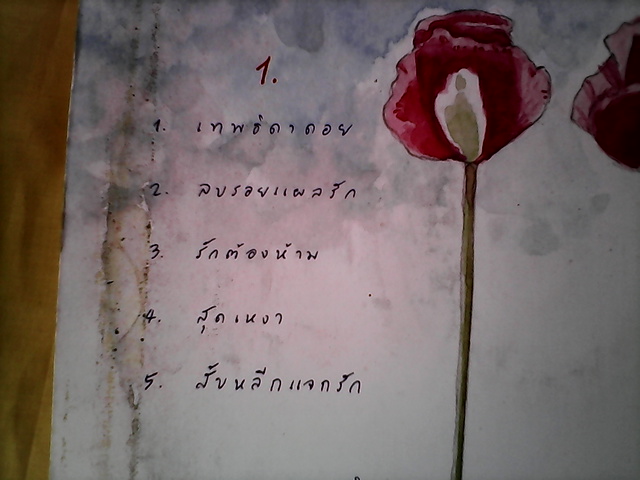 1.
1. เทพธิดาดอย
2. ลบรอยแผลรัก
3. รักต้องห้าม
4. สุดเหงา
5. สับหลีกแจกรัก